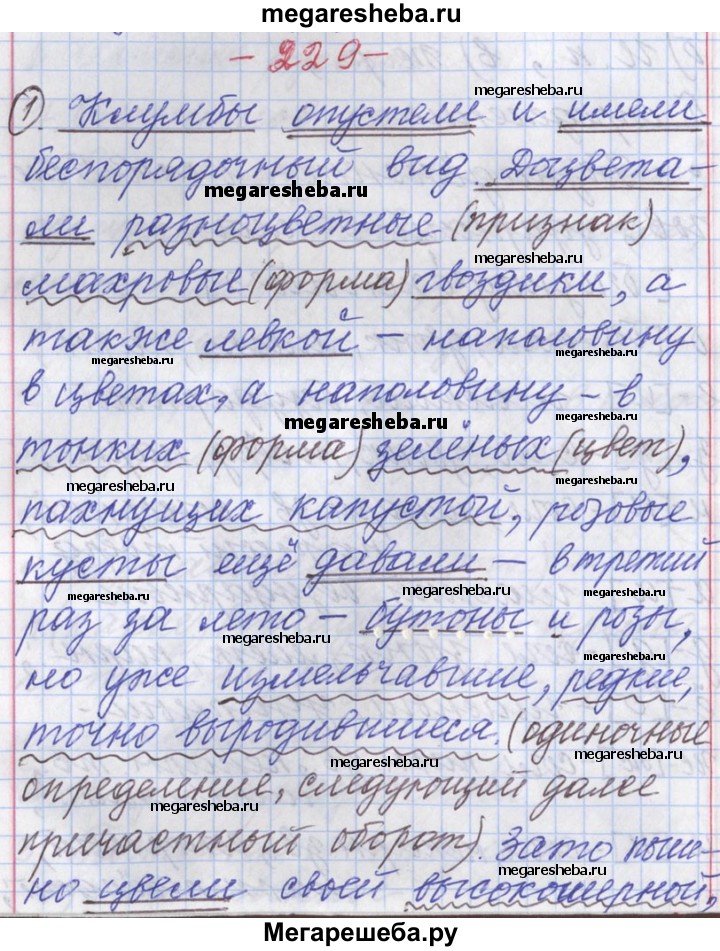 megaresheba.ru
- 229 -
megaresheba.ru
1. Клумбы опустели и имели
megaresheba.ru
беспорядочный вид Доцвета-
megaresheba.ru
ли разноцветные (признак)
megaresheba.ru
махровые (форма) гвоздики, а
megaresheba.ru
также левкой - наполовину
megaresheba.ru
в цветах, а наполовину - в
megaresheba.ru
тонких (форма) зелёных (цвет),
megaresheba.ru
megaresheba.ru
пахнущих капустой, розовые
megaresheba.ru
кусты ещё давали - в третий
megaresheba.ru
megaresheba.ru
раз за лето - бутоны и розы,
megaresheba.ru
но уже измельчавшие, редкие,
megaresheba.ru
точно выродившиеся. (одиночные
megaresheba.ru
определение, следующий далее
megaresheba.ru
причастный оборот). Зато пыш-
megaresheba.ru
но цвели своей высокомерной,
Мегарешеба.ру